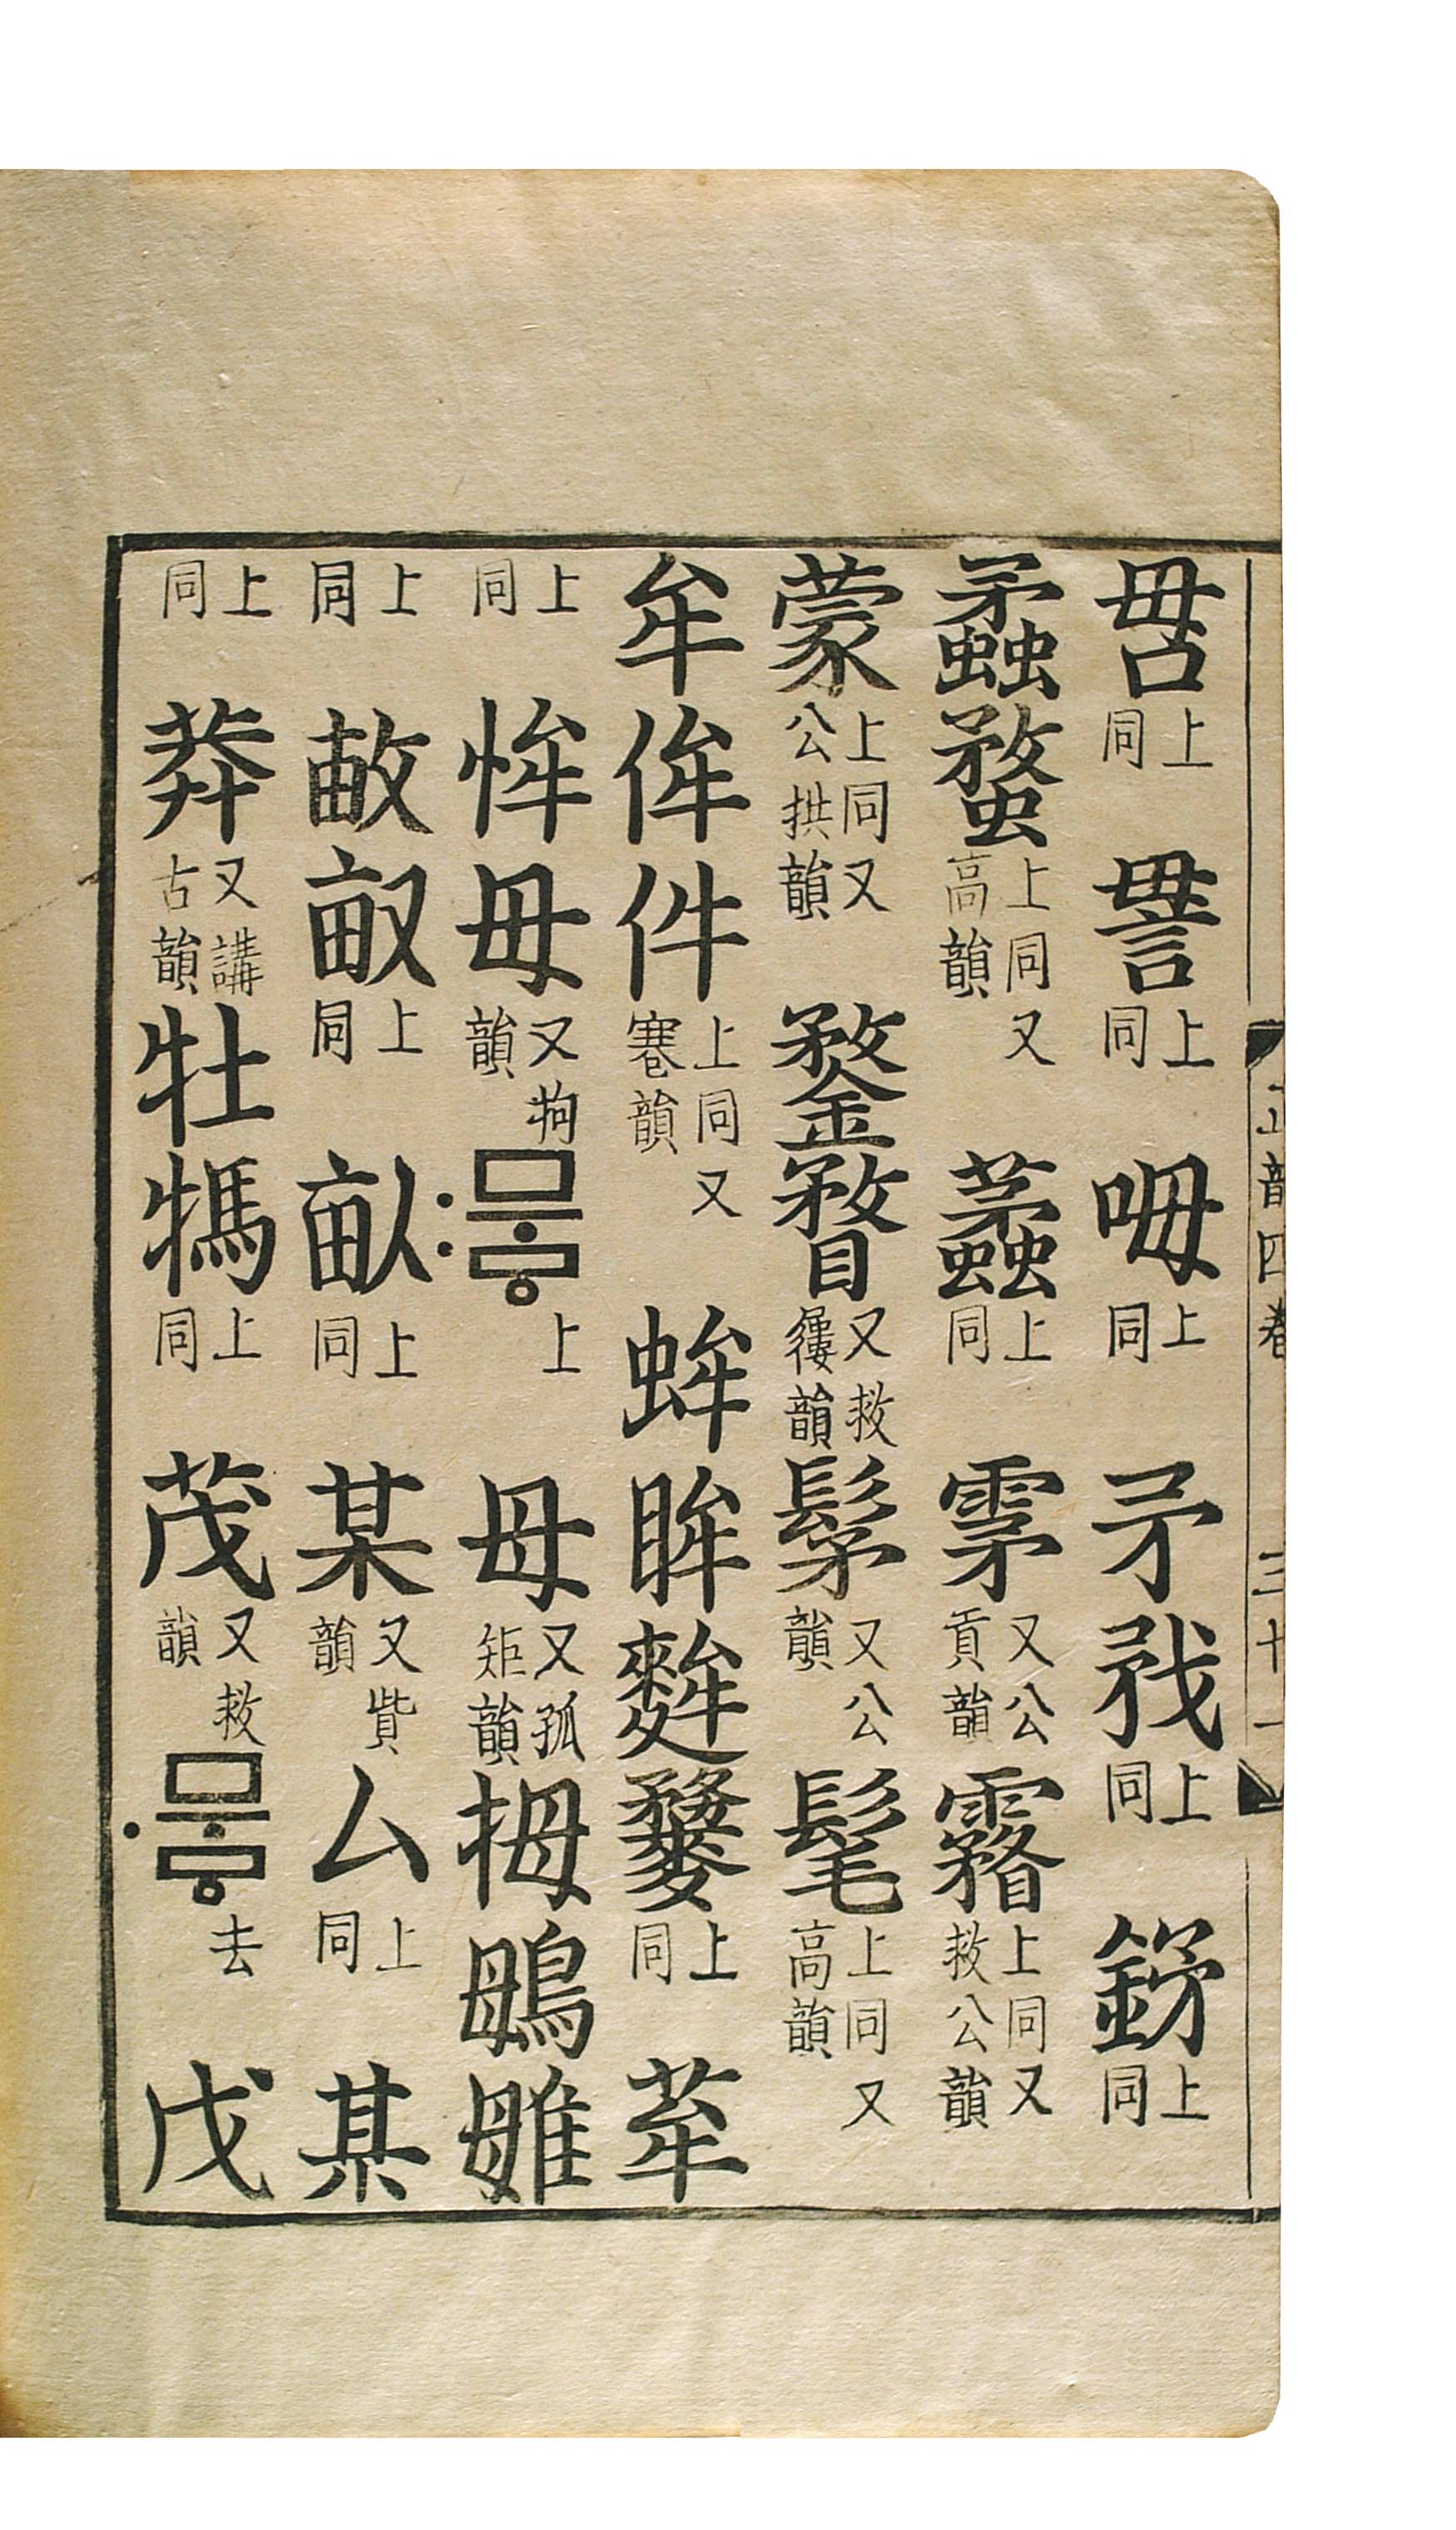 正韻四卷 三十一
上同 上同 呣 上同 矛 上同 上同
蟊蝥 上同又高韻 上同 雺 又公貢韻 霿 上同又救公韻
蒙 上同又公拱韻 鍪瞀 又救韻 髳 又公韻 髦 上同又高韻
牟侔件 上同又寋韻 蛑眸麰 上同
上同 恈母 又狗韻 무ᇢ〯 上 母 又孤矩韻 拇
上同 上同 畆 上同 某 又貲韻 厶 上同
上同 莽 又講古韻 牡 上同 茂 又救韻 무ᇢ〮 去 戊